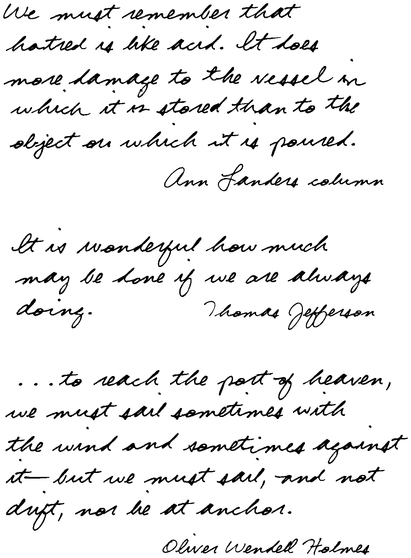 We must remember that
hatred is like acid. It does
more damage to the vessel in
which it is stored than to the
object on which it is poured.
Ann Landers column
It is wonderful how much
may be done if we are always
doing. Thomas Jefferson
...to reach the port of heaven,
we must sail sometimes with
the wind and sometimes against
it—but we must sail, and not
drift, nor lie at anchor.
Oliver Wendell Holmes